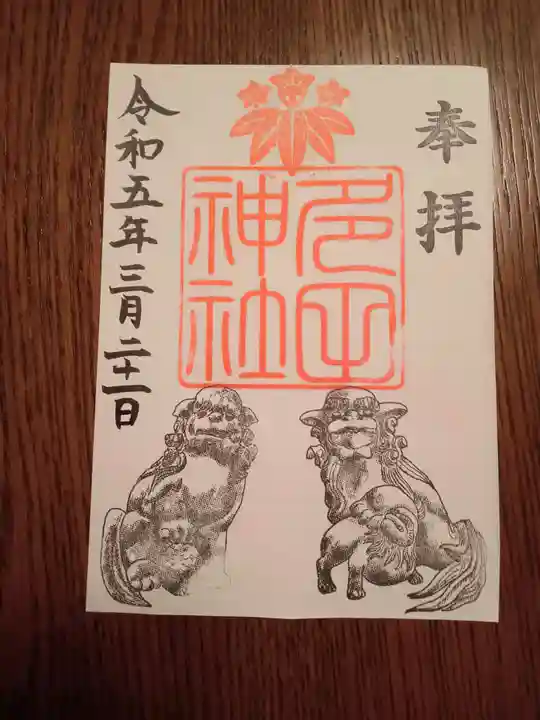 奉拝
多田
神社
令和五年三月二十一日